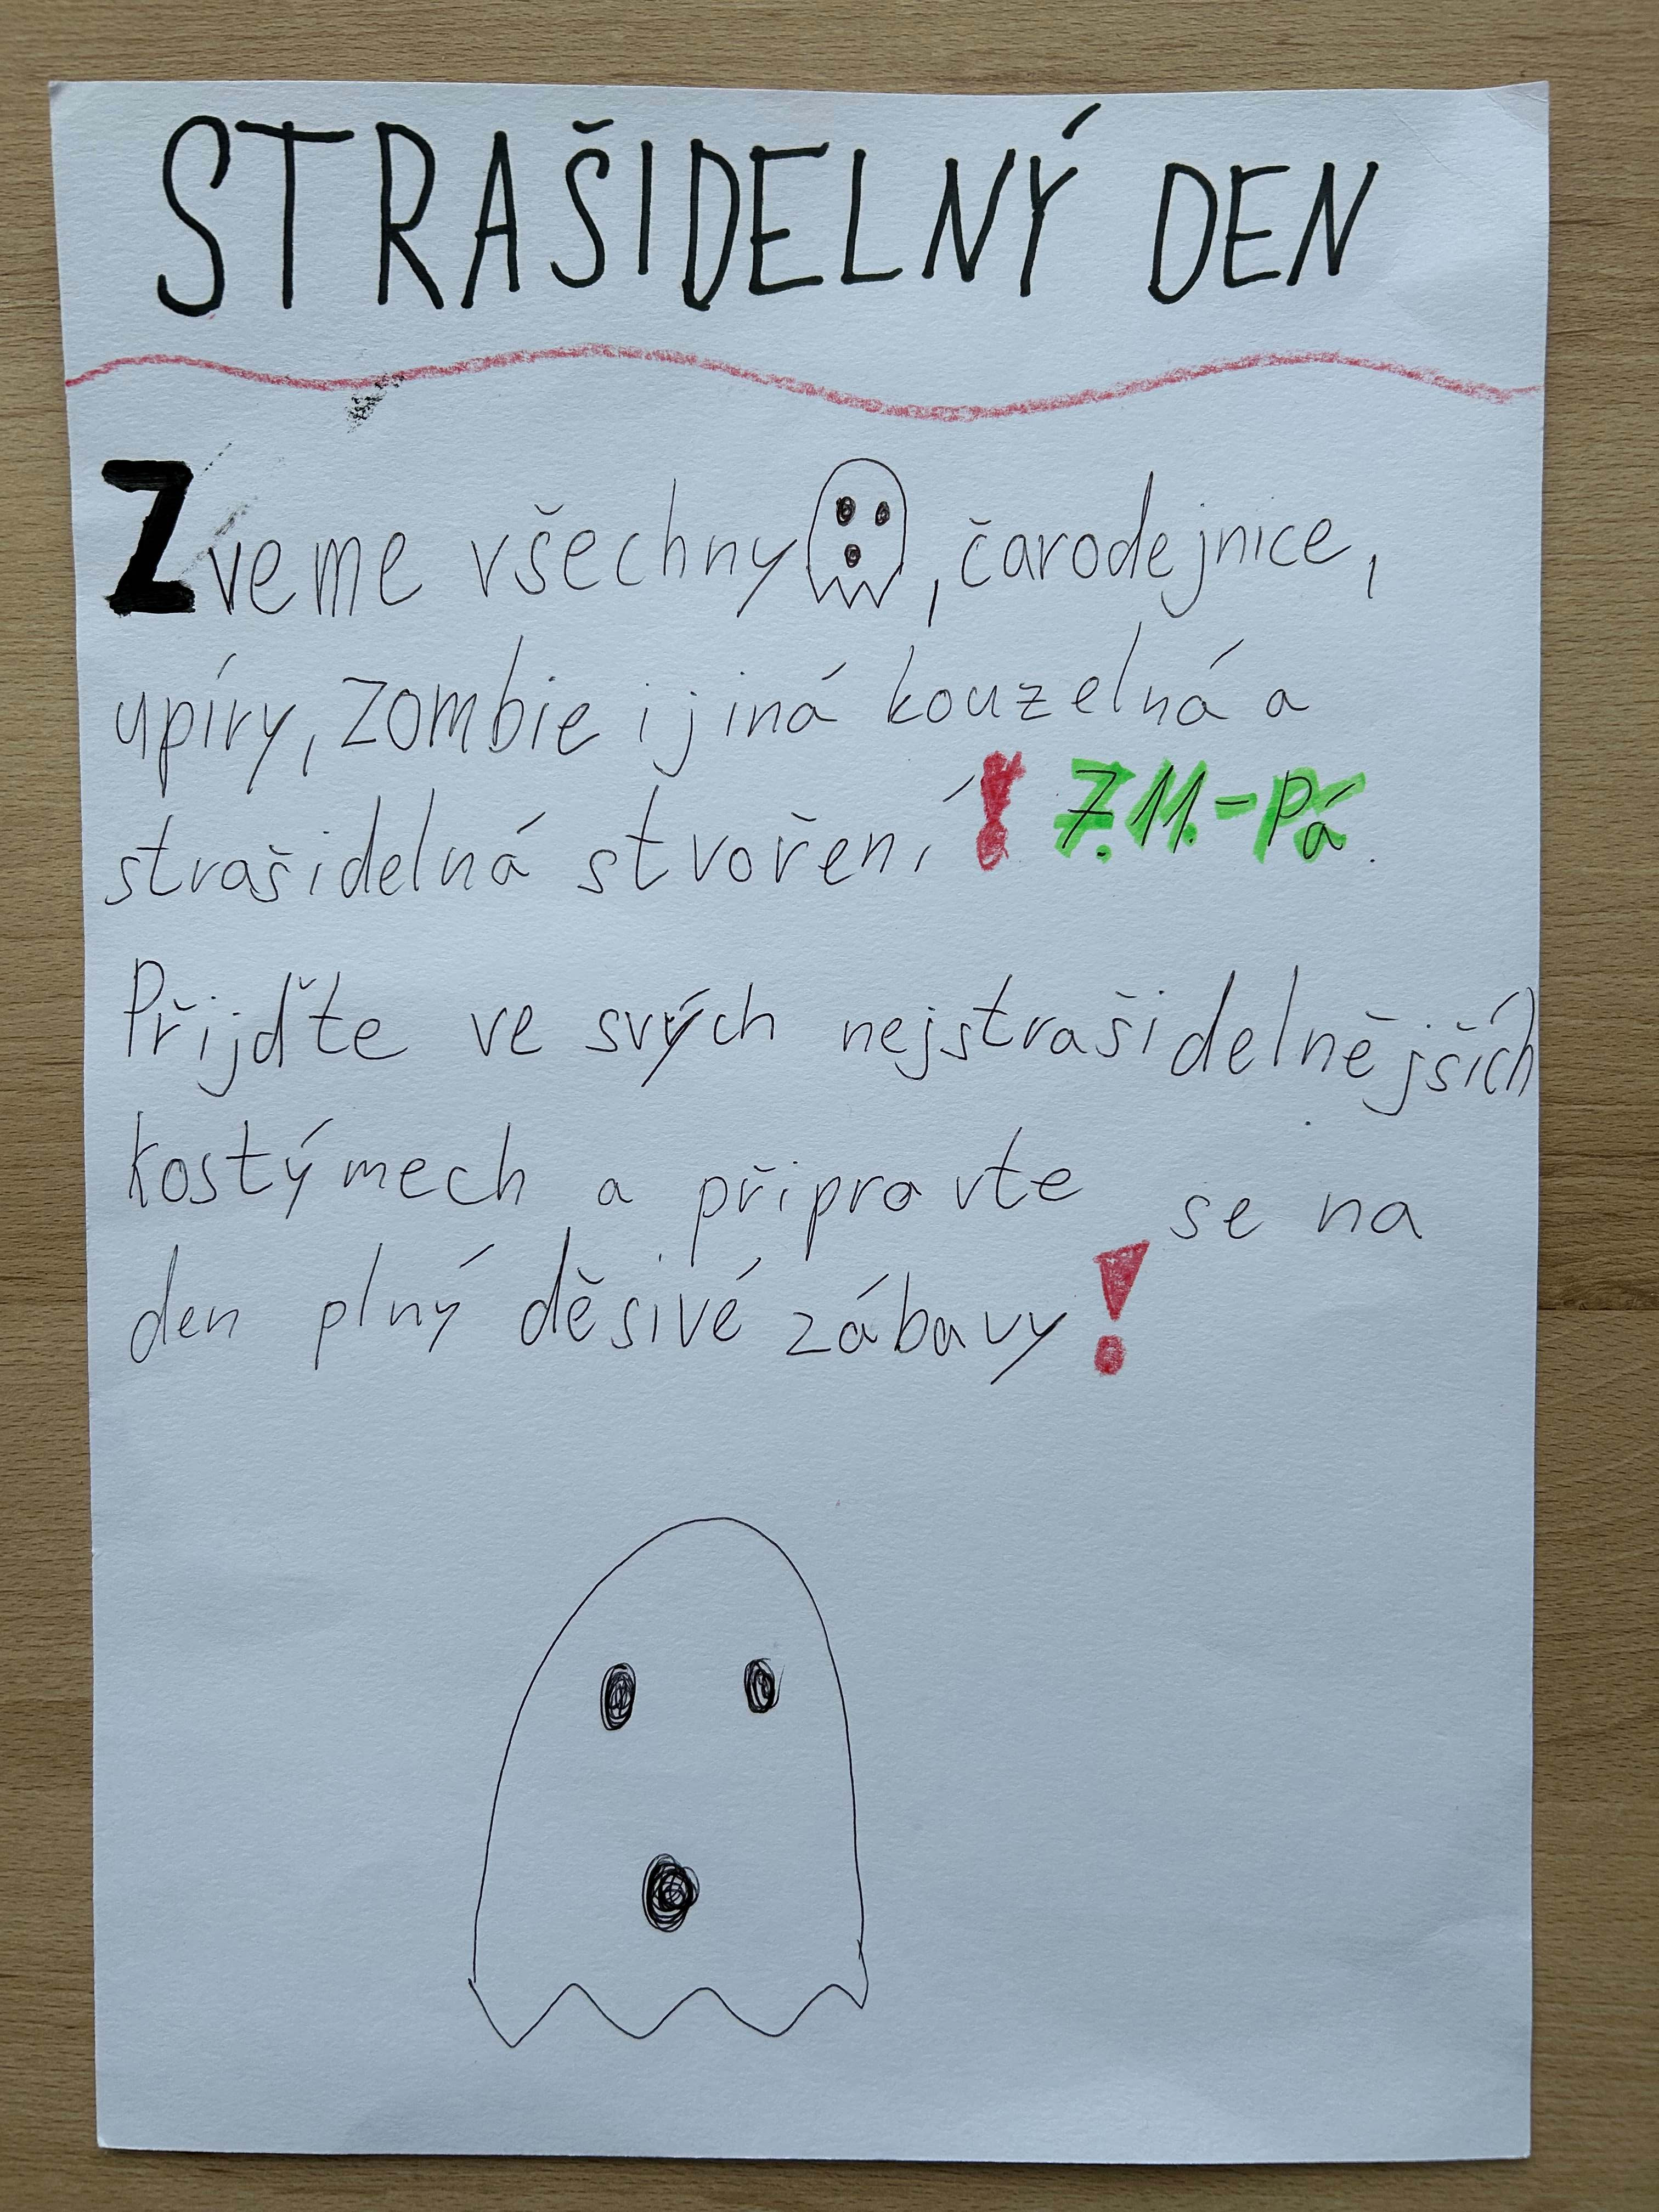 STRAŠIDELNÝ DEN
Zveme všechny , čarodejnice,
upíry, zombie i jiná kouzelná a
strašidelná stvoření! 7.11. - Pá
Přijďte ve svých nejstrašidelnějších
kostýmech a připravte se na
den plný děsivé zábavy!